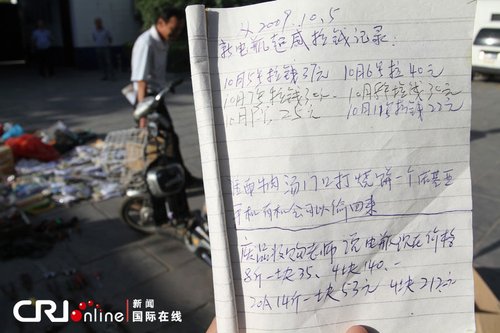 从2009.10.5
新电瓶起威拉钱记录:
10月5号拉钱37元 10月6号拉40元
10月7号拉钱30 10月8号拉钱30元
10月9号 25元 10月11号拉钱22元
牛肉汤17口打烧饼一个
手机有机会可以偷回来
废品收购老师说电瓶现在价格
8斤一块35、4块140.-
20A 14斤一块53元 4块212元
CRIonline 新闻
国际在线